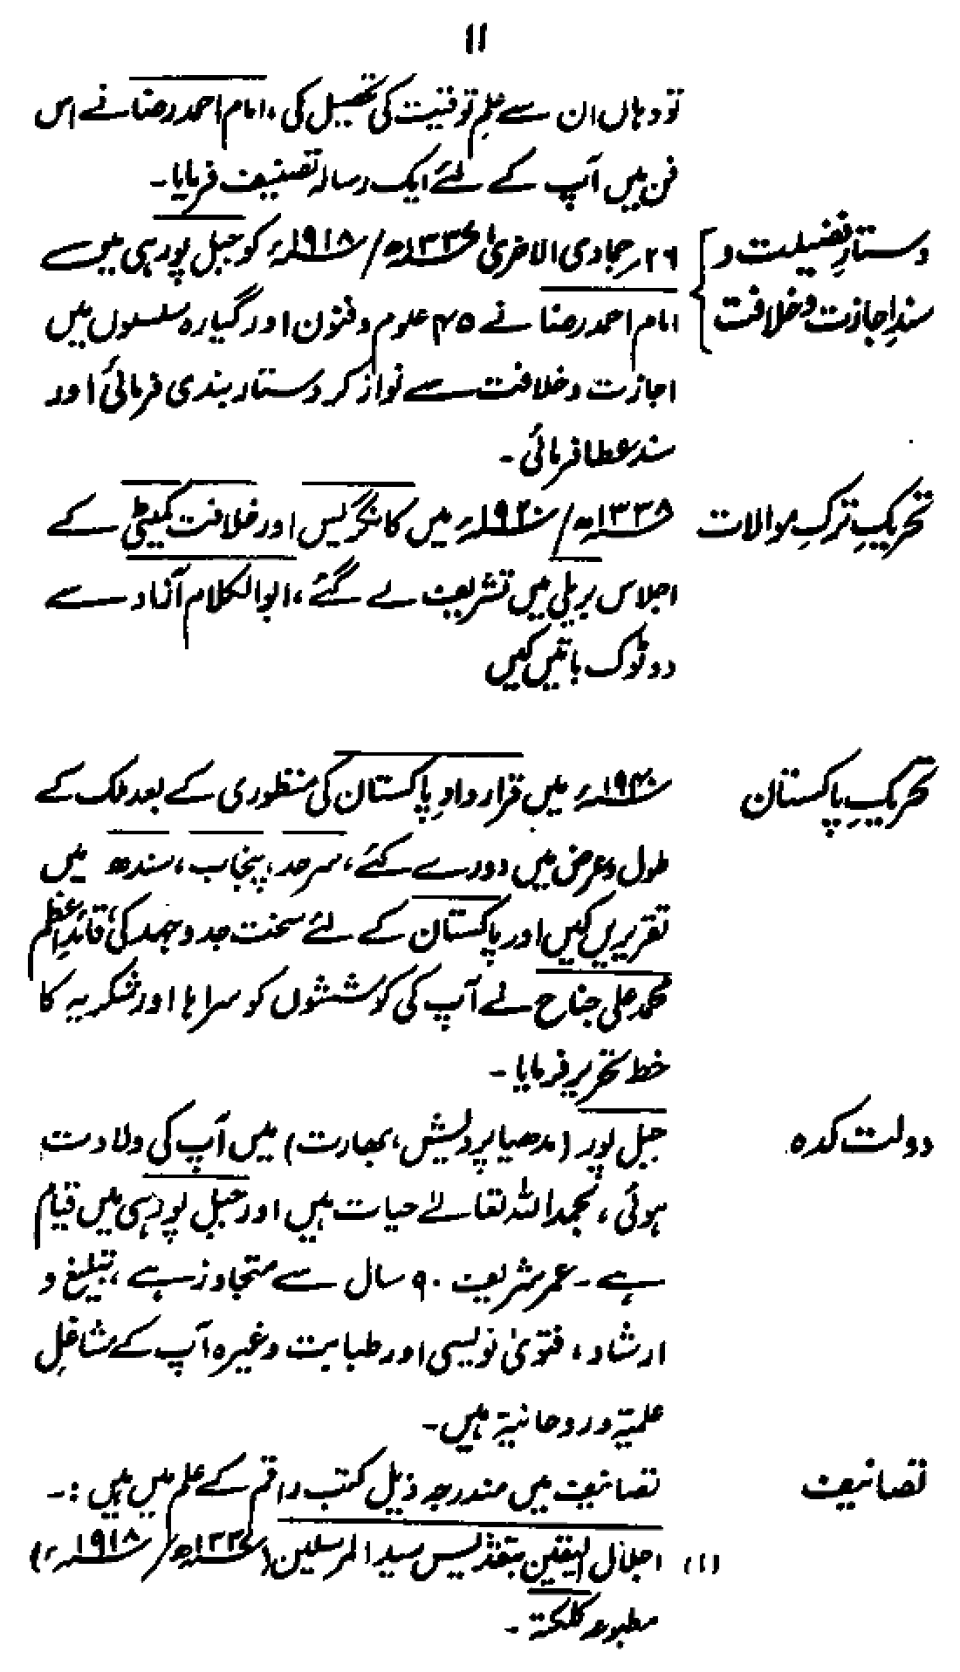 ۱۱
تو وہاں ان سے علمِ توقیت کی تحصیل کی، امام احمد رضا نے اس
فن میں آپ کے لئے ایک رسالہ تصنیف فرمایا۔
دستارِ فضیلت و
سندِ اجازت و خلافت
۲۶؍جمادی الاخریٰ ۱۳۳۶ھ/۱۹۱۸ء کو جبل پور ہی میں
امام احمد رضا نے ۴۵ علوم و فنون اور گیارہ سلسلوں میں
اجازت و خلافت سے نواز کر دستار بندی فرمائی اور
سند عطا فرمائی ۔
تحریکِ ترکِ موالات ۱۳۳۸ھ/۱۹۲۰ء میں کانگریس اور خلافت کمیٹی کے
اجلاس بریلی میں تشریف لے گئے، ابوالکلام آزاد سے
دوٹوک باتیں کیں
تحریکِ پاکستان ۱۹۴۰ء میں قرار دادِ پاکستان کی منظوری کے بعد ملک کے
طول و عرض میں دورے کئے، سرحد، پنجاب، سندھ میں
تقریریں کیں اور پاکستان کے لئے سخت جدوجہد کی، قائدِ اعظم
محمد علی جناح نے آپ کی کوششوں کو سراہا اور شکریہ کا
خط تحریر فرمایا ۔
دولت کدہ جبل پور (مدھیا پردیش، بھارت) میں آپ کی ولادت
ہوئی، بحمد اللہ تعالیٰ حیات ہیں اور جبل پور ہی میں قیام
ہے ۔ عمر شریف ۹۰ سال سے متجاوز ہے، تبلیغ و
ارشاد، فتویٰ نویسی اور طبابت وغیرہ آپ کے مشاغلِ
علمیۃ و روحانیۃ ہیں۔
تصانیف تصانیف میں مندرجہ ذیل کتب راقم کے علم میں ہیں :۔
(۱) اجلال الیقین بتقدیس سید المرسلین (۱۳۳۷ھ/۱۹۱۸ء)
مطبوعہ کلکتہ ۔